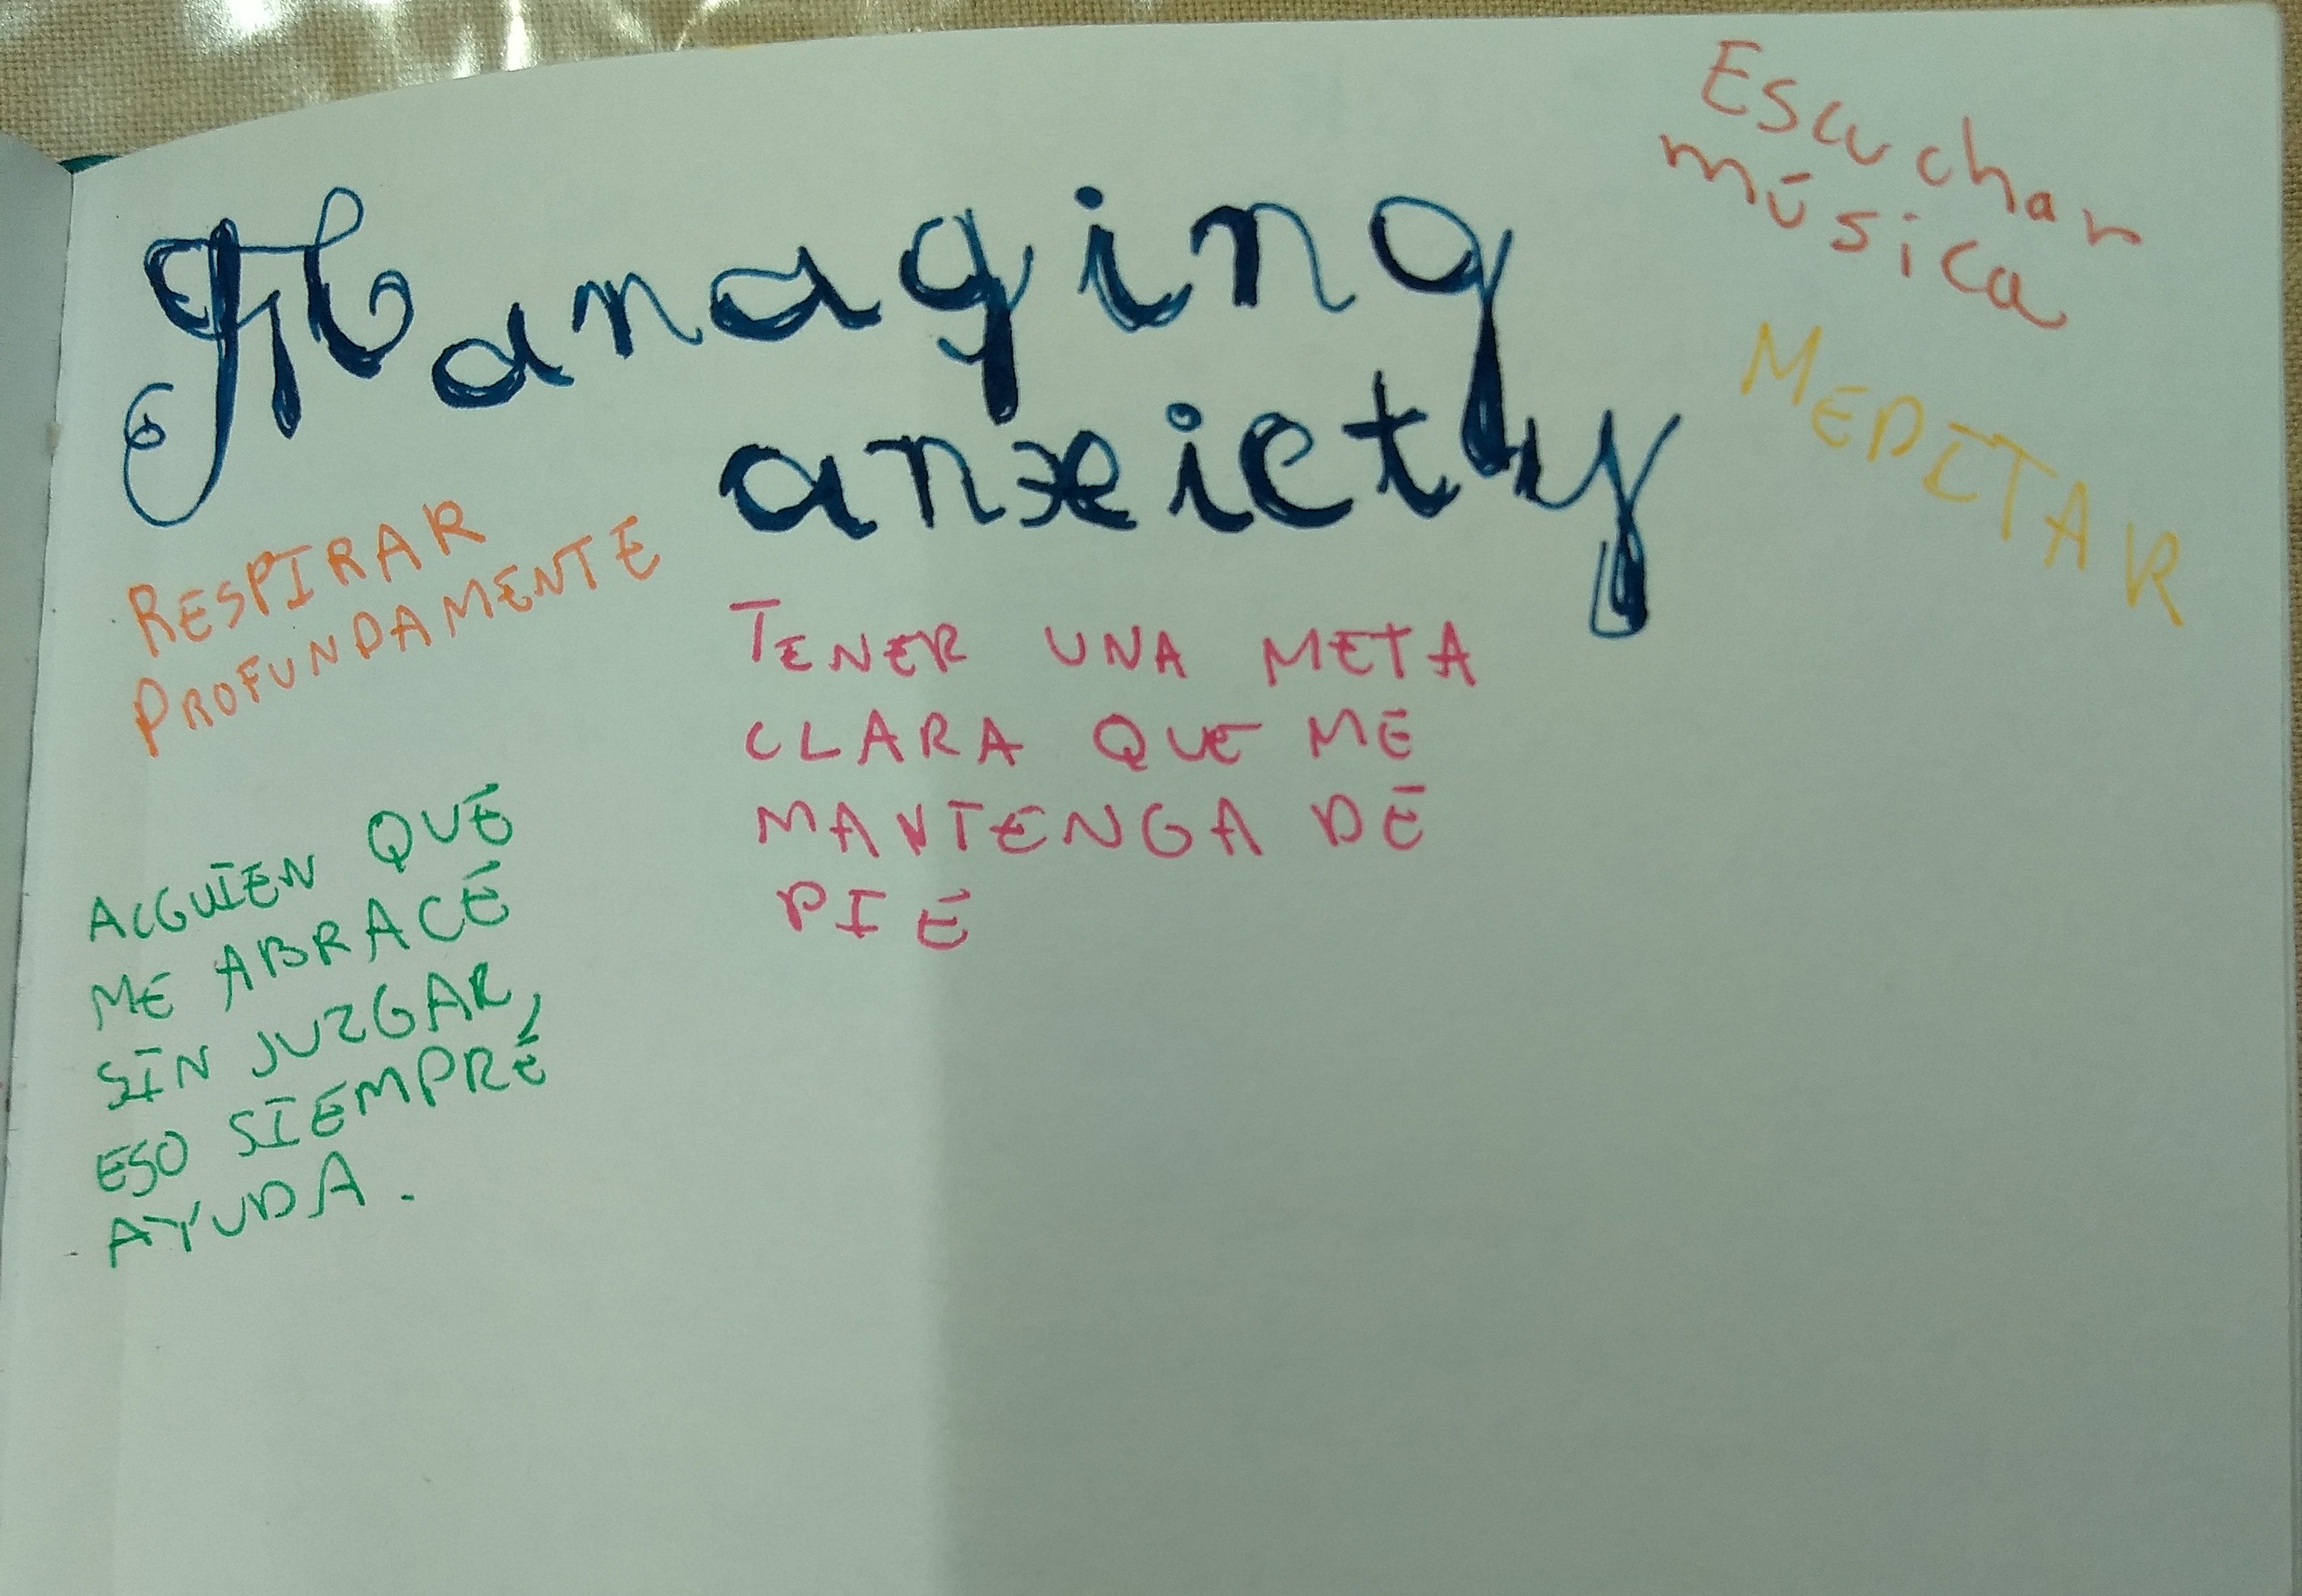 Managing
anxiety
Escuchar
música
MEDITAR
RESPIRAR
PROFUNDAMENTE
TENER UNA META
CLARA QUE ME
MANTENGA DE
PIE
ALGUIEN QUE
ME ABRACE
SIN JUZGAR,
ESO SIEMPRE
AYUDA.